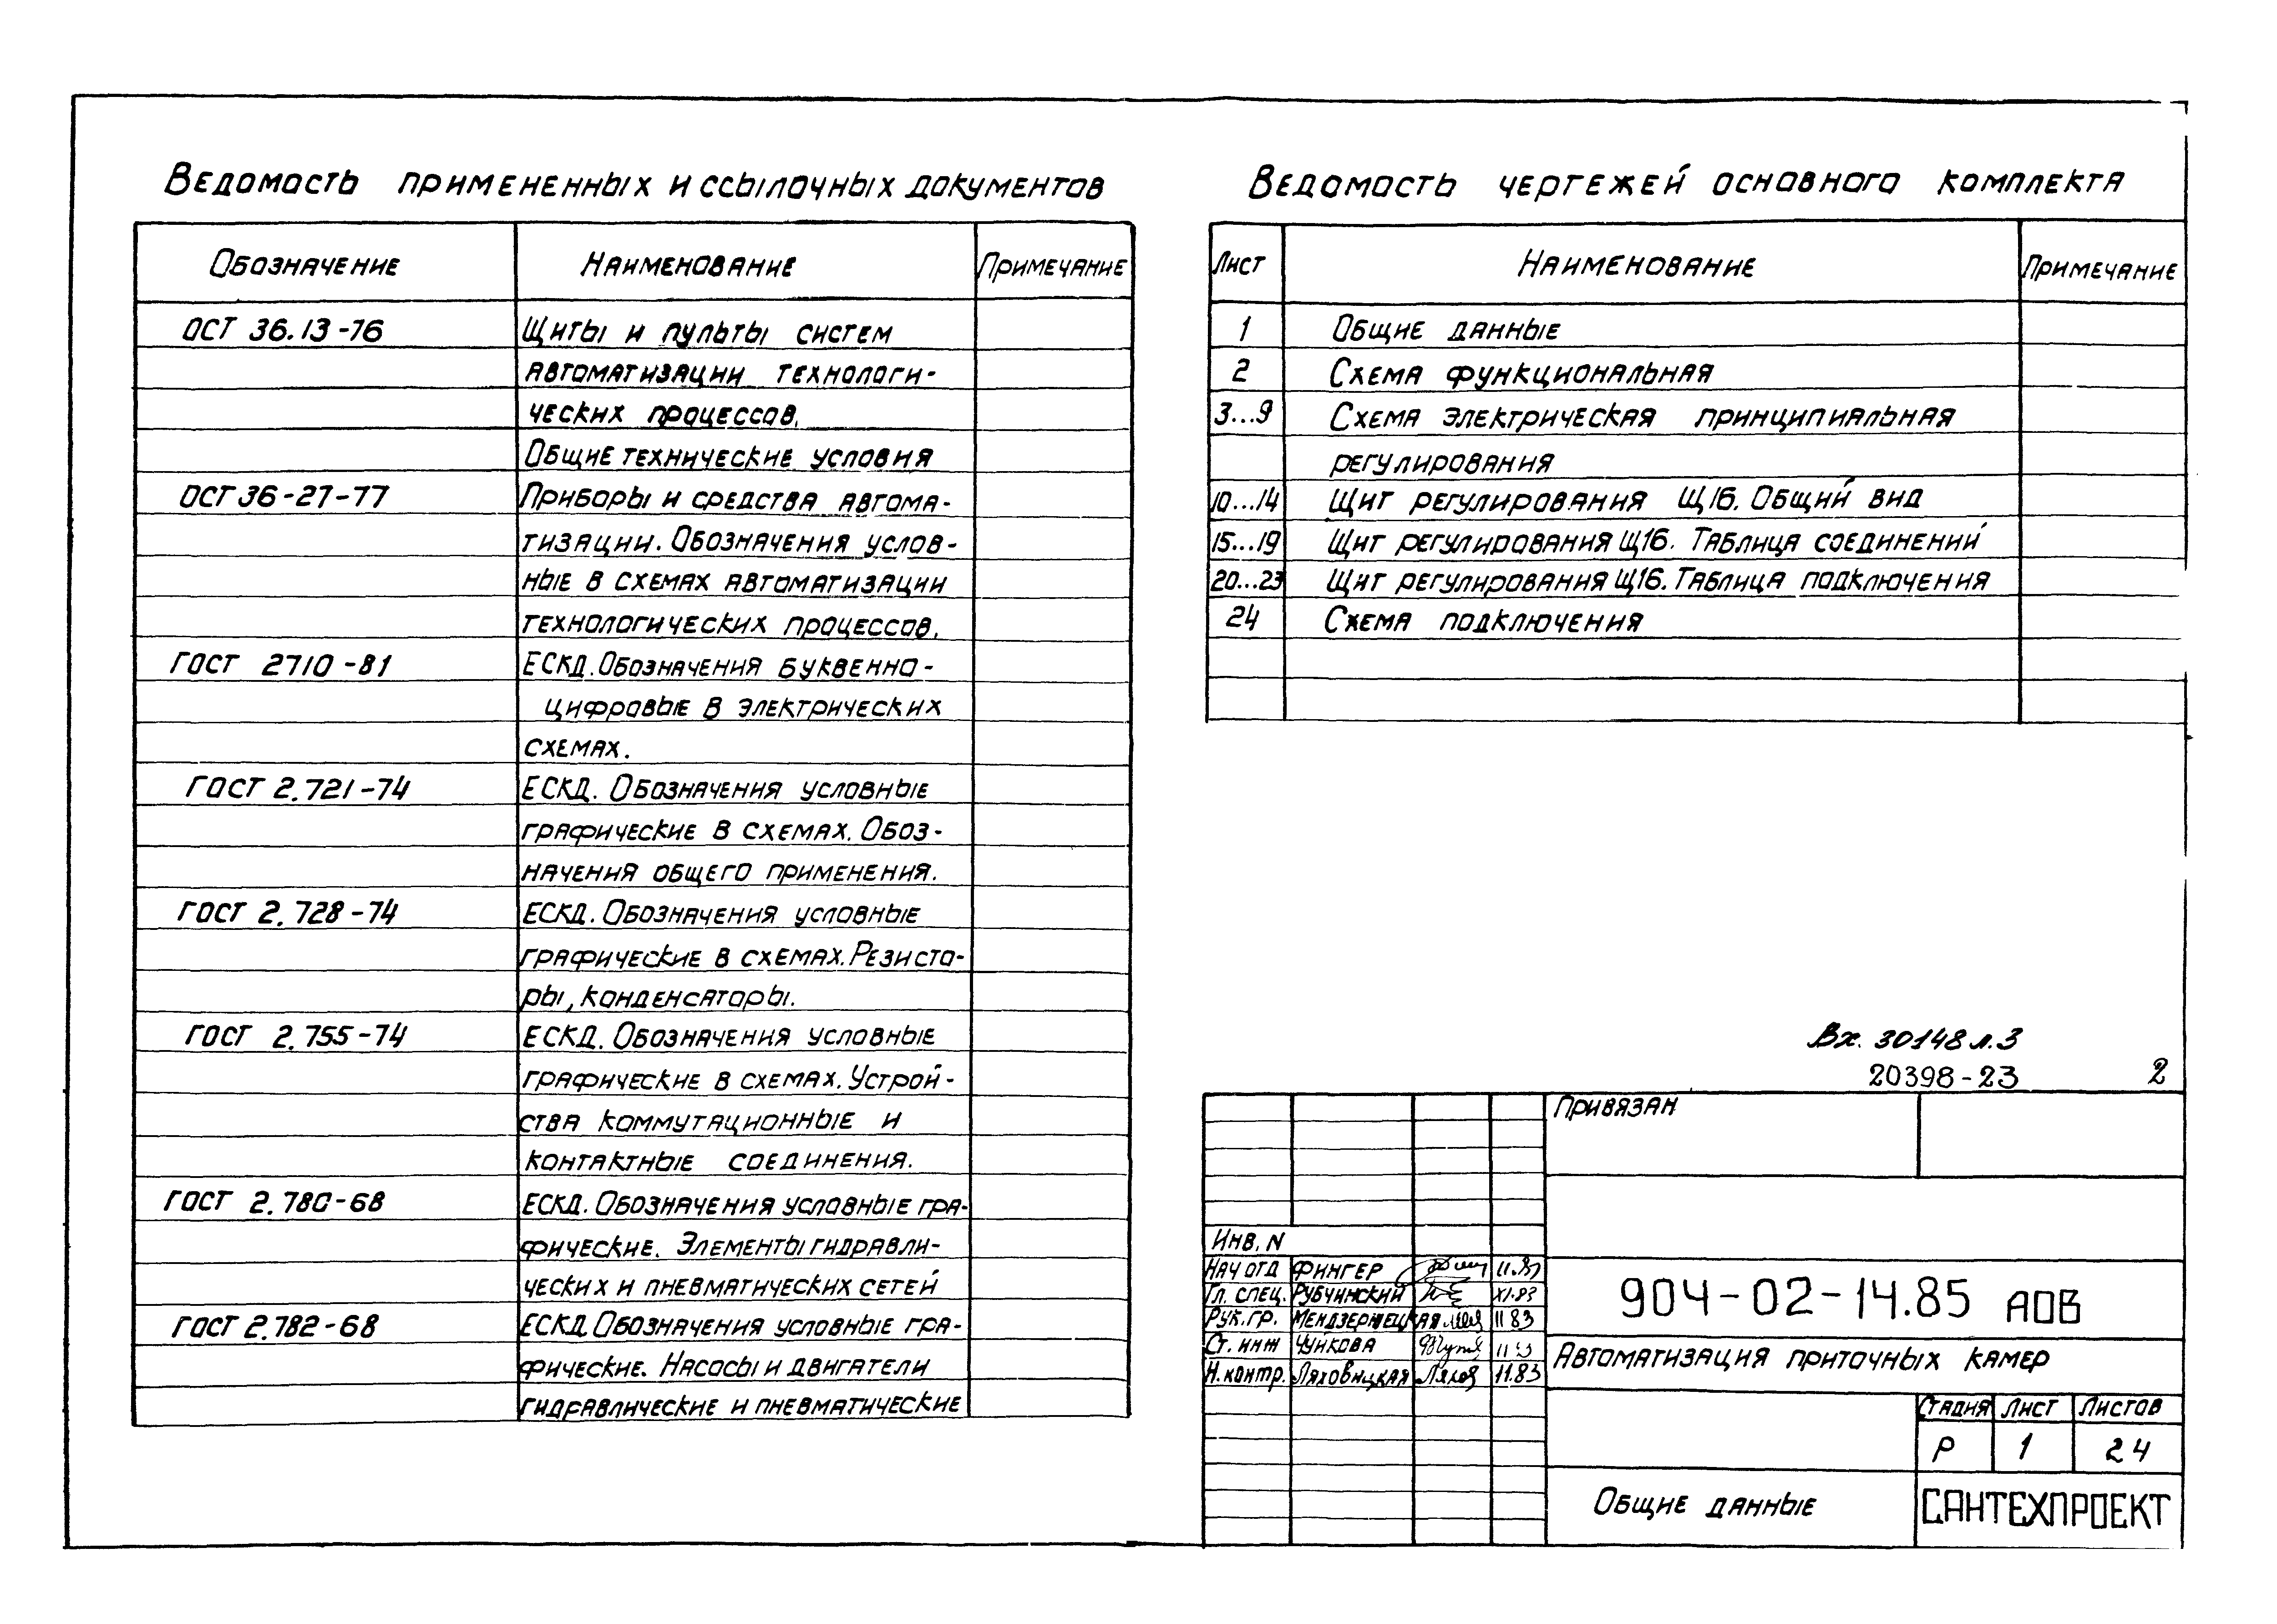 Ведомость примененных и ссылочных документов
Обозначение Наименование Примечание
ОСТ 36.13-76 Щиты и пульты систем
автоматизации технологи-
ческих процессов.
Общие технические условия
ОСТ 36-27-77 Приборы и средства автома-
тизации. Обозначения услов-
ные в схемах автоматизации
технологических процессов.
ГОСТ 2710-81 ЕСКД. Обозначения буквенно-
цифровые в электрических
схемах.
ГОСТ 2.721-74 ЕСКД. Обозначения условные
графические в схемах. Обоз-
начения общего применения.
ГОСТ 2.728-74 ЕСКД. Обозначения условные
графические в схемах. Резисто-
ры, конденсаторы.
ГОСТ 2.755-74 ЕСКД. Обозначения условные
графические в схемах. Устрой-
ства коммутационные и
контактные соединения.
ГОСТ 2.780-68 ЕСКД. Обозначения условные гра-
фические. Элементы гидравли-
ческих и пневматических сетей
ГОСТ 2.782-68 ЕСКД Обозначения условные гра-
фические. Насосы и двигатели
гидравлические и пневматические
Ведомость чертежей основного комплекта
Лист Наименование Примечание
1 Общие данные
2 Схема функциональная
3...9 Схема электрическая принципиальная
регулирования
10...14 Щит регулирования Щ16. Общий вид
15...19 Щит регулирования Щ16. Таблица соединений
20...23 Щит регулирования Щ16. Таблица подключения
24 Схема подключения
Вх. 30148 л.3
20398-23 2
Привязан
Инв. N
Нач отд Фингер 11.83
Гл. спец. Рубчинский XI.83
Рук. гр. Мендзержецкая 11 83
Ст. инж Чуйкова
Н. контр. Ляховицкая 11.83
904-02-14.85 АОВ
Автоматизация приточных камер
Стадия Лист Листов
Р 1 24
Общие данные
САНТЕХПРОЕКТ